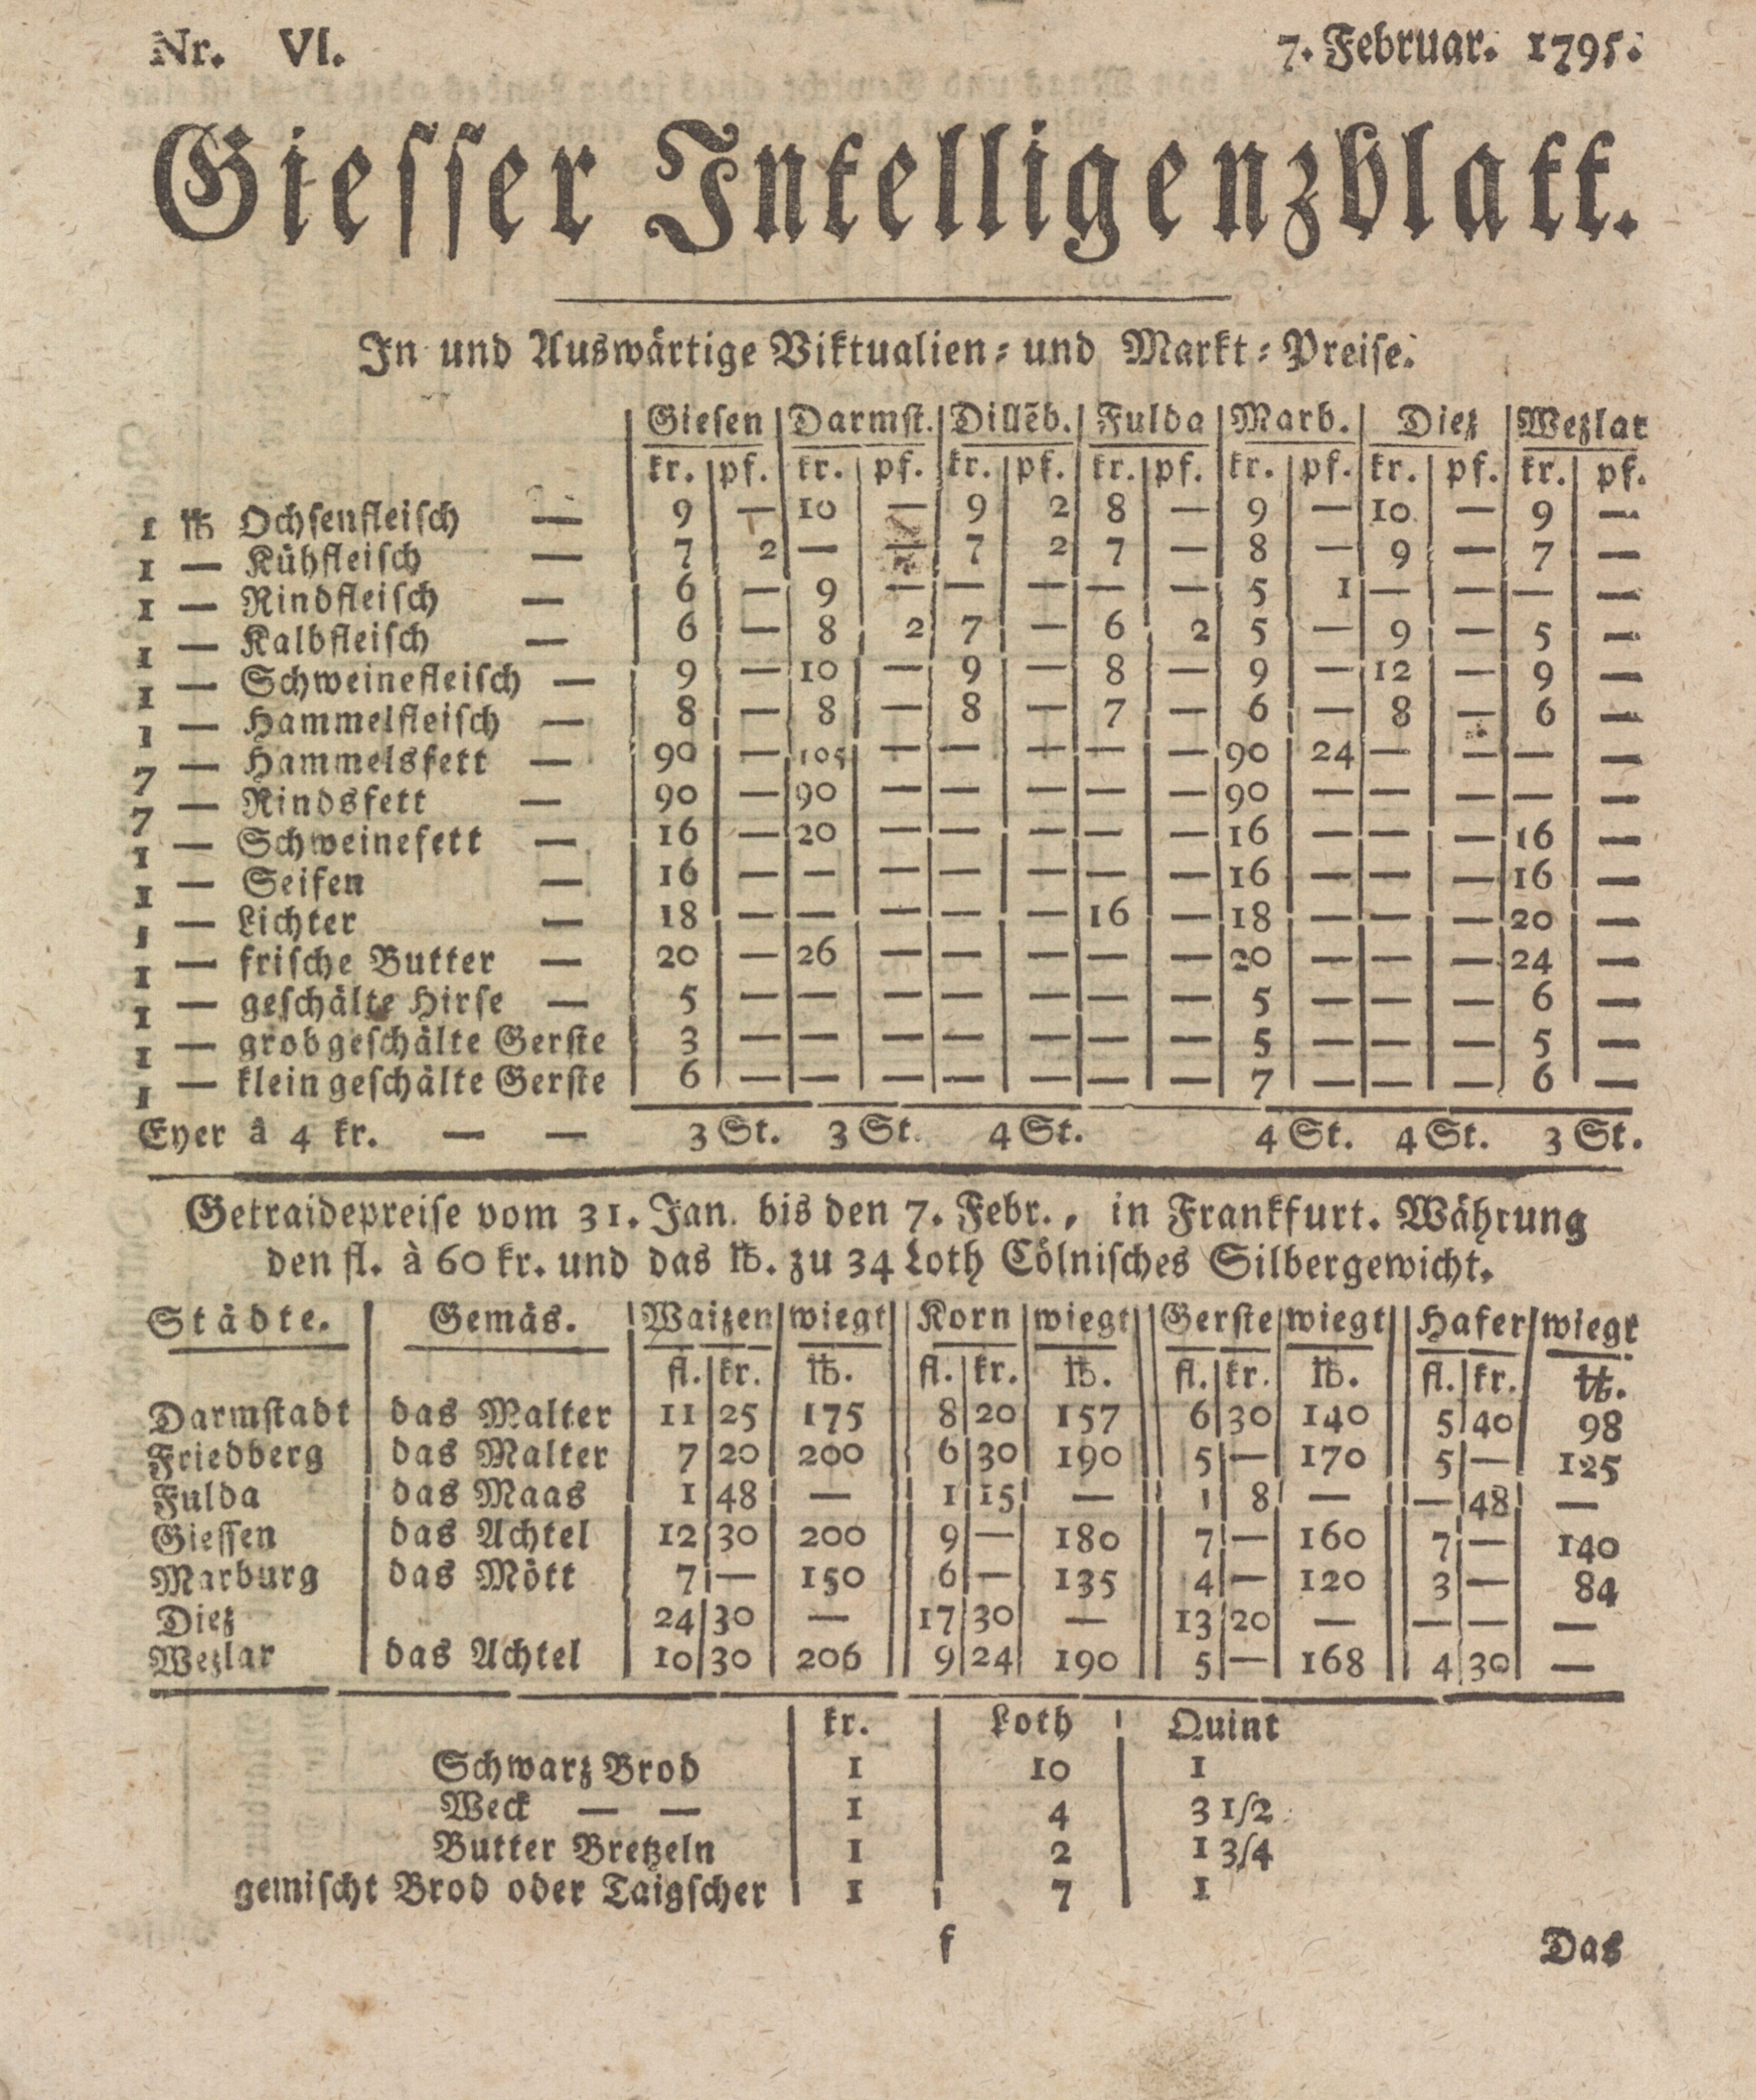 Nr. VI. 7. Februar. 1795.
Giesser Intelligenzblatt.
In und Auswärtige Viktualien- und Markt-Preise.
Giesen | Darmst. | Dillēb. | Fulda | Marb. | Diez | Wezlar
kr. | pf. | kr. | pf. | kr. | pf. | kr. | pf. | kr. | pf. | kr. | pf. | kr. | pf.
1 ℔ Ochsenfleisch — | 9 | — | 10 | — | 9 | 2 | 8 | — | 9 | — | 10 | — | 9 | —
1 — Kühfleisch — | 7 | 2 | — | — | 7 | 2 | 7 | — | 8 | — | 9 | — | 7 | —
1 — Rindfleisch — | 6 | — | 9 | — | — | — | — | — | 5 | 1 | — | — | — | —
1 — Kalbfleisch — | 6 | — | 8 | 2 | 7 | — | 6 | 2 | 5 | — | 9 | — | 5 | —
1 — Schweinefleisch — | 9 | — | 10 | — | 9 | — | 8 | — | 9 | — | 12 | — | 9 | —
1 — Hammelfleisch — | 8 | — | 8 | — | 8 | — | 7 | — | 6 | — | 8 | — | 6 | —
7 — Hammelsfett — | 90 | — | 105 | — | — | — | — | — | 90 | 24 | — | — | — | —
7 — Rindsfett — | 90 | — | 90 | — | — | — | — | — | 90 | — | — | — | — | —
1 — Schweinefett — | 16 | — | 20 | — | — | — | — | — | 16 | — | — | — | 16 | —
1 — Seifen — | 16 | — | — | — | — | — | — | — | 16 | — | — | — | 16 | —
1 — Lichter — | 18 | — | — | — | — | — | 16 | — | 18 | — | — | — | 20 | —
1 — frische Butter — | 20 | — | 26 | — | — | — | — | — | 20 | — | — | — | 24 | —
1 — geschälte Hirse — | 5 | — | — | — | — | — | — | — | 5 | — | — | — | 6 | —
1 — grob geschälte Gerste | 3 | — | — | — | — | — | — | — | 5 | — | — | — | 5 | —
1 — klein geschälte Gerste | 6 | — | — | — | — | — | — | — | 7 | — | — | — | 6 | —
Eyer à 4 kr. — — 3 St. 3 St. 4 St. 4 St. 4 St. 3 St.
Getraidepreise vom 31. Jan. bis den 7. Febr., in Frankfurt. Währung
den fl. à 60 kr. und das ℔. zu 34 Loth Cölnisches Silbergewicht.
Städte. | Gemäs. | Waizen | wiegt | Korn | wiegt | Gerste | wiegt | Hafer | wiegt
fl. | kr. | ℔. | fl. | kr. | ℔. | fl. | kr. | ℔. | fl. | kr. | ℔.
Darmstadt | das Malter | 11 | 25 | 175 | 8 | 20 | 157 | 6 | 30 | 140 | 5 | 40 | 98
Friedberg | das Malter | 7 | 20 | 200 | 6 | 30 | 190 | 5 | — | 170 | 5 | — | 125
Fulda | das Maas | 1 | 48 | — | 1 | 15 | — | 1 | 8 | — | — | 48 | —
Giessen | das Achtel | 12 | 30 | 200 | 9 | — | 180 | 7 | — | 160 | 7 | — | 140
Marburg | das Mött | 7 | — | 150 | 6 | — | 135 | 4 | — | 120 | 3 | — | 84
Diez | 24 | 30 | — | 17 | 30 | — | 13 | 20 | — | — | — | —
Wezlar | das Achtel | 10 | 30 | 206 | 9 | 24 | 190 | 5 | — | 168 | 4 | 30 | —
kr. | Loth | Quint
Schwarz Brod | 1 | 10 | 1
Weck — — | 1 | 4 | 3 1/2
Butter Bretzeln | 1 | 2 | 1 3/4
gemischt Brod oder Taigscher | 1 | 7 | 1
f Das